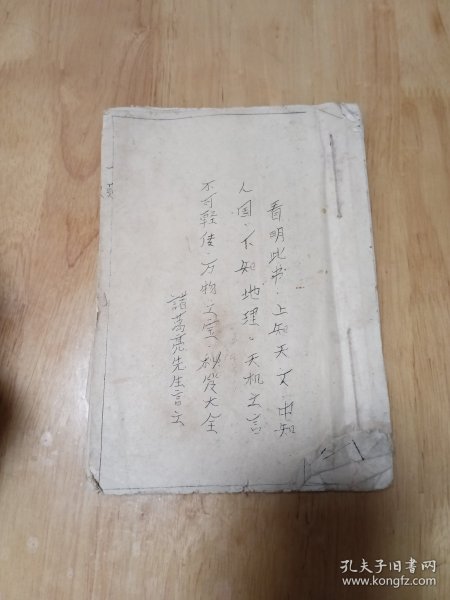 看明此书．上知天文．中知
人国．下知地理。天机之言
不可轻传．万物之宝．秘发大全
諸葛亮先生言文
一页
孔夫子旧书网
www.kongfz.com